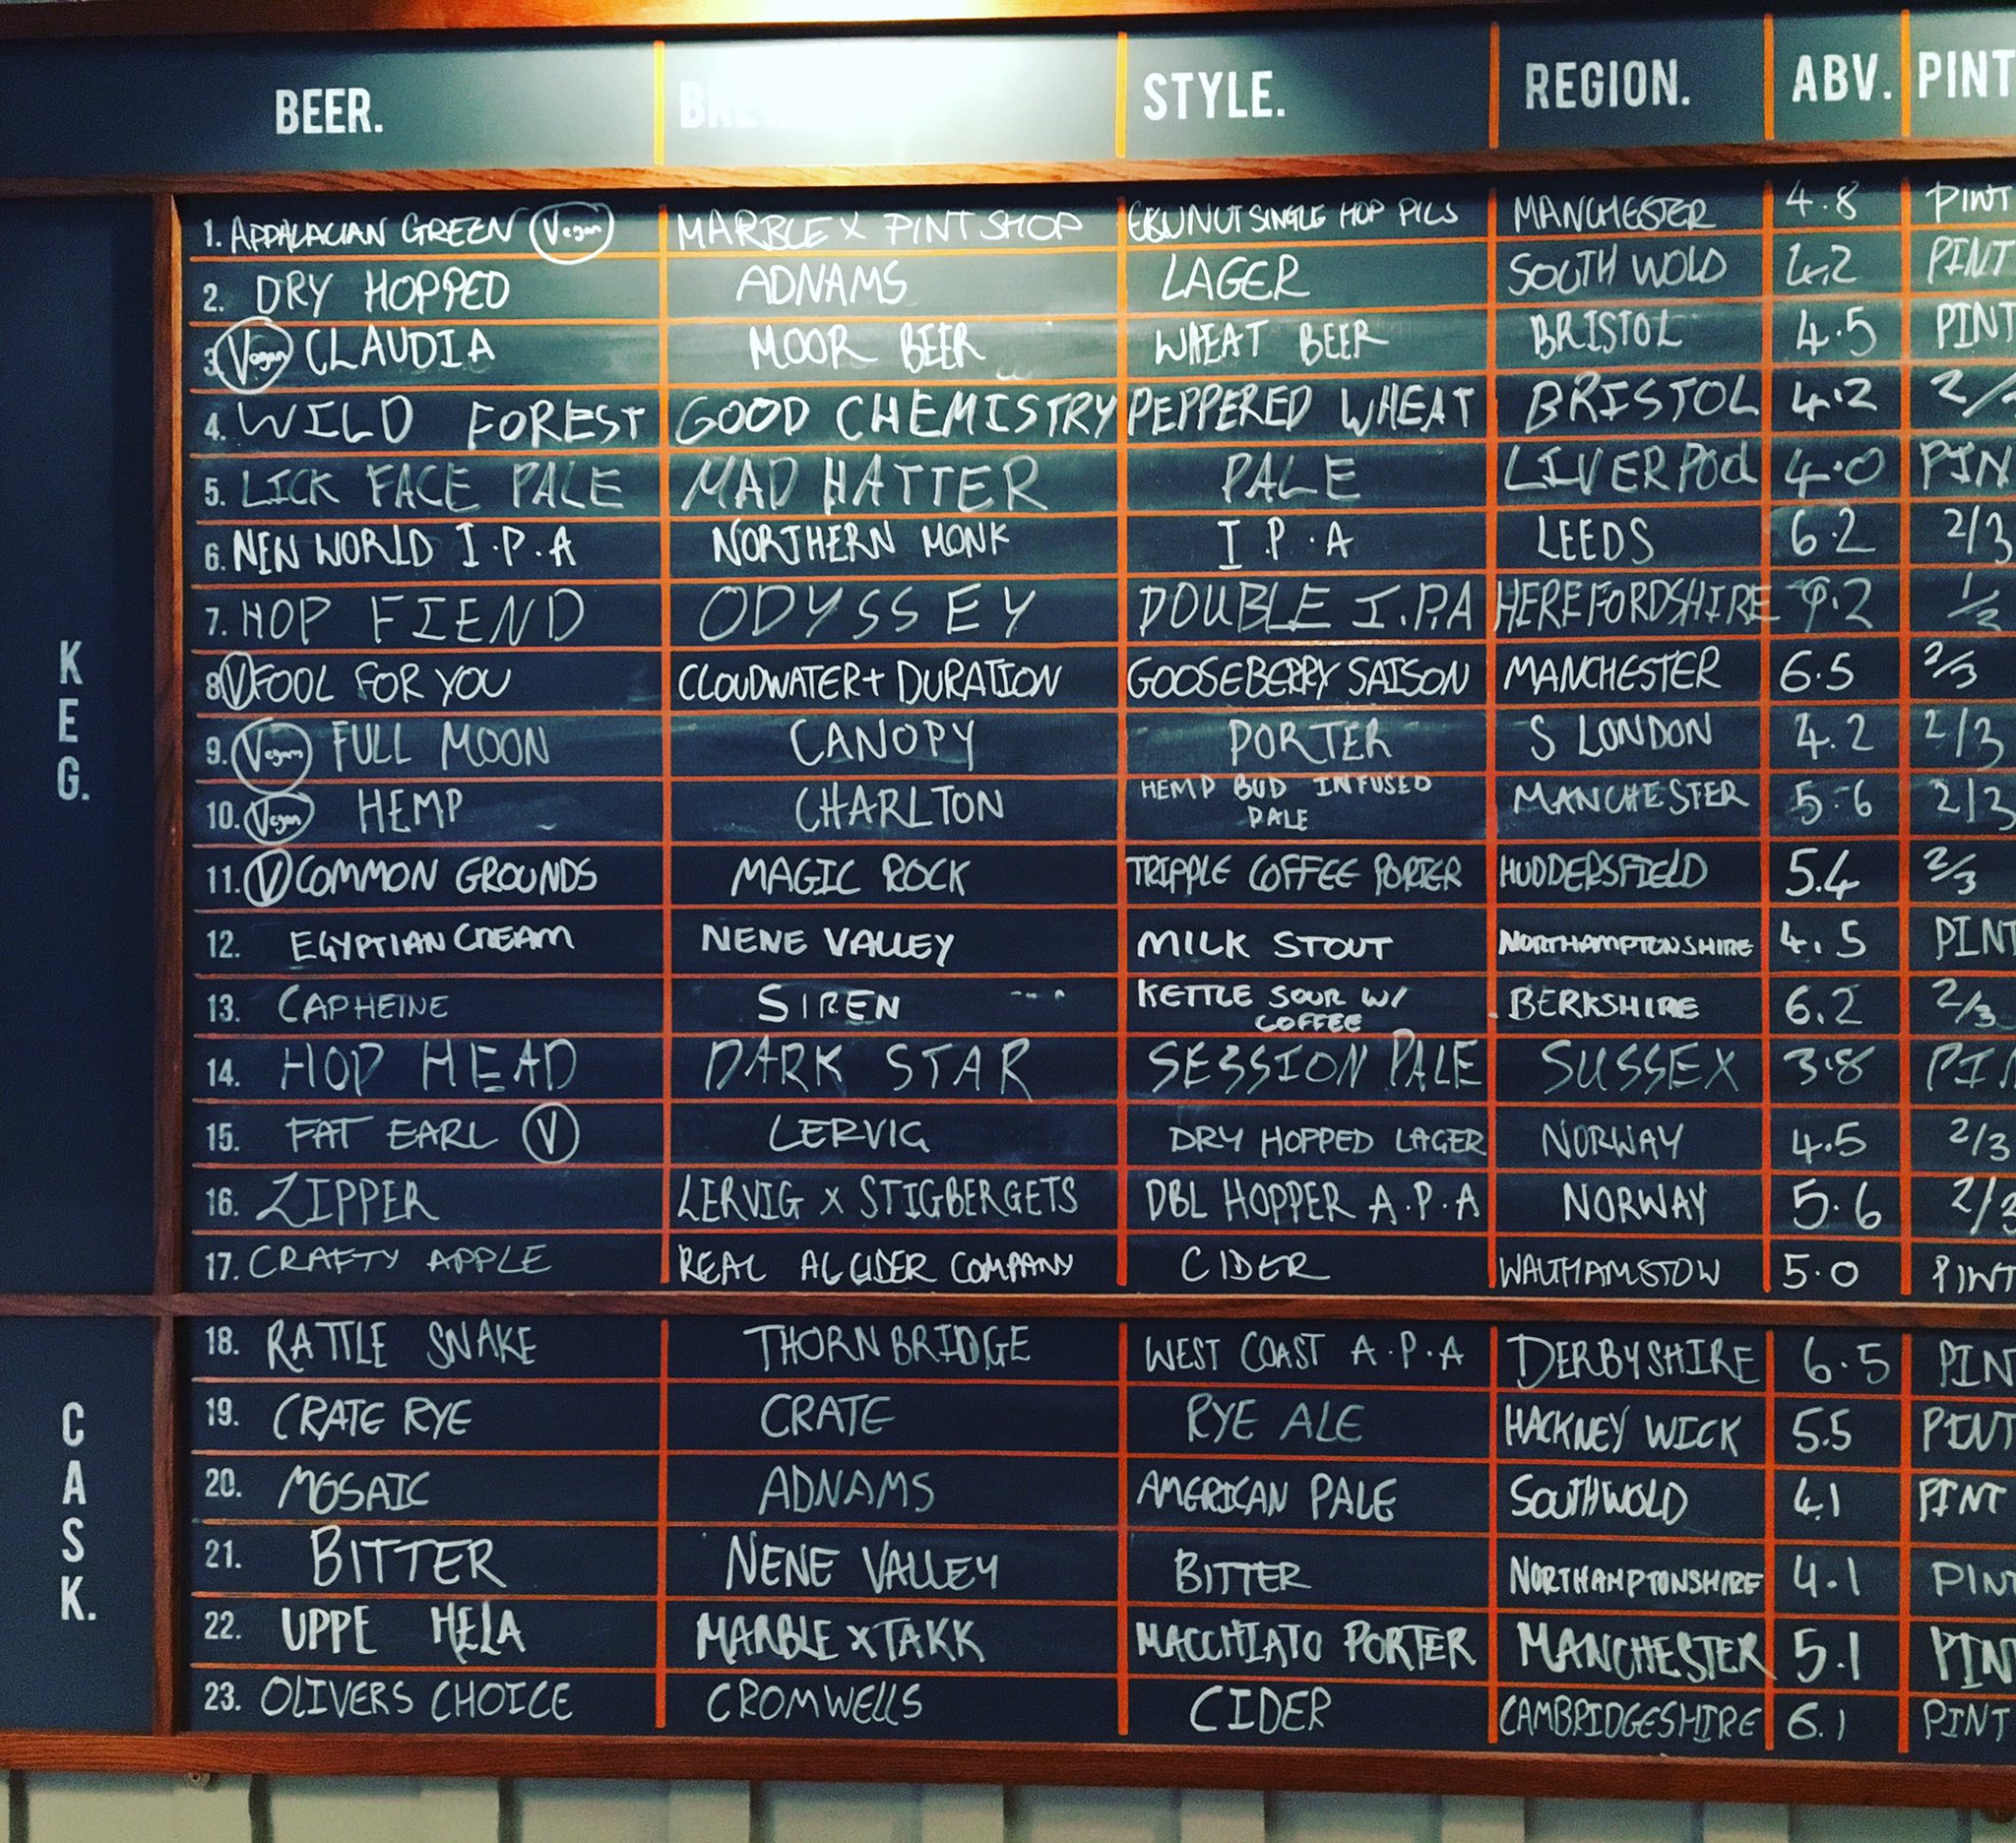 BEER. STYLE. REGION. ABV. PINT
KEG.
1. APPALACIAN GREEN Vegan MARBLE X PINT SHOP SINGLE HOP PILS MANCHESTER 4.8 PINT
2. DRY HOPPED ADNAMS LAGER SOUTH WOLD 4.2 PINT
3 Vegan CLAUDIA MOOR BEER WHEAT BEER BRISTOL 4.5 PINT
4. WILD FOREST GOOD CHEMISTRY PEPPERED WHEAT BRISTOL 4.2 2/
5. LICK FACE PALE MAD HATTER PALE LIVERPOOL 4.0 PIN
6. NEW WORLD I.P.A NORTHERN MONK I.P.A LEEDS 6.2 2/3
7. HOP FIEND ODYSSEY DOUBLE I.P.A HEREFORDSHIRE 9.2 1/2
8 V FOOL FOR YOU CLOUDWATER + DURATION GOOSEBERRY SAISON MANCHESTER 6.5 2/3
9. Vegan FULL MOON CANOPY PORTER S LONDON 4.2 2/3
10. Vegan HEMP CHARLTON HEMP BUD INFUSED PALE MANCHESTER 5.6 2/3
11. V COMMON GROUNDS MAGIC ROCK TRIPPLE COFFEE PORTER HUDDERSFIELD 5.4 2/3
12. EGYPTIAN CREAM NENE VALLEY MILK STOUT NORTHAMPTONSHIRE 4.5 PINT
13. CAPHEINE SIREN KETTLE SOUR W/ COFFEE BERKSHIRE 6.2 2/3
14. HOP HEAD DARK STAR SESSION PALE SUSSEX 3.8 PIN
15. FAT EARL V LERVIG DRY HOPPED LAGER NORWAY 4.5 2/3
16. ZIPPER LERVIG X STIGBERGETS DBL HOPPER A.P.A NORWAY 5.6 2/3
17. CRAFTY APPLE REAL AL CIDER COMPANY CIDER WALTHAMSTOW 5.0 PINT
CASK.
18. RATTLE SNAKE THORNBRIDGE WEST COAST A.P.A DERBYSHIRE 6.5 PIN
19. CRATE RYE CRATE RYE ALE HACKNEY WICK 5.5 PINT
20. MOSAIC ADNAMS AMERICAN PALE SOUTHWOLD 4.1 PINT
21. BITTER NENE VALLEY BITTER NORTHAMPTONSHIRE 4.1 PINT
22. UPPE HELA MARBLE X TAKK MACCHIATO PORTER MANCHESTER 5.1 PIN
23. OLIVERS CHOICE CROMWELLS CIDER CAMBRIDGESHIRE 6.1 PINT